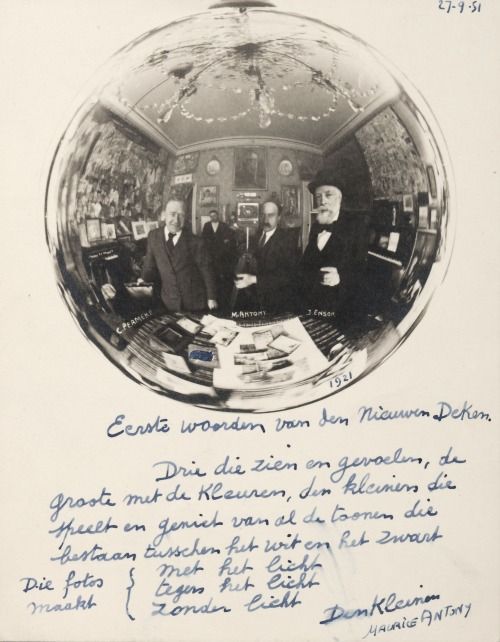 27-9-51
C. PERMEKE
M. ANTONY
J. ENSOR
1921
Eerste woorden van den Nieuwen Deken.
Drie die zien en gevoelen, de
groote met de Kleuren, den kleinen die
speelt en geniet van al de toonen die
bestaan tusschen het wit en het zwart
Die fotos maakt { met het licht
tegen het licht
zonder licht
Den Kleinen
MAURICE ANTONY